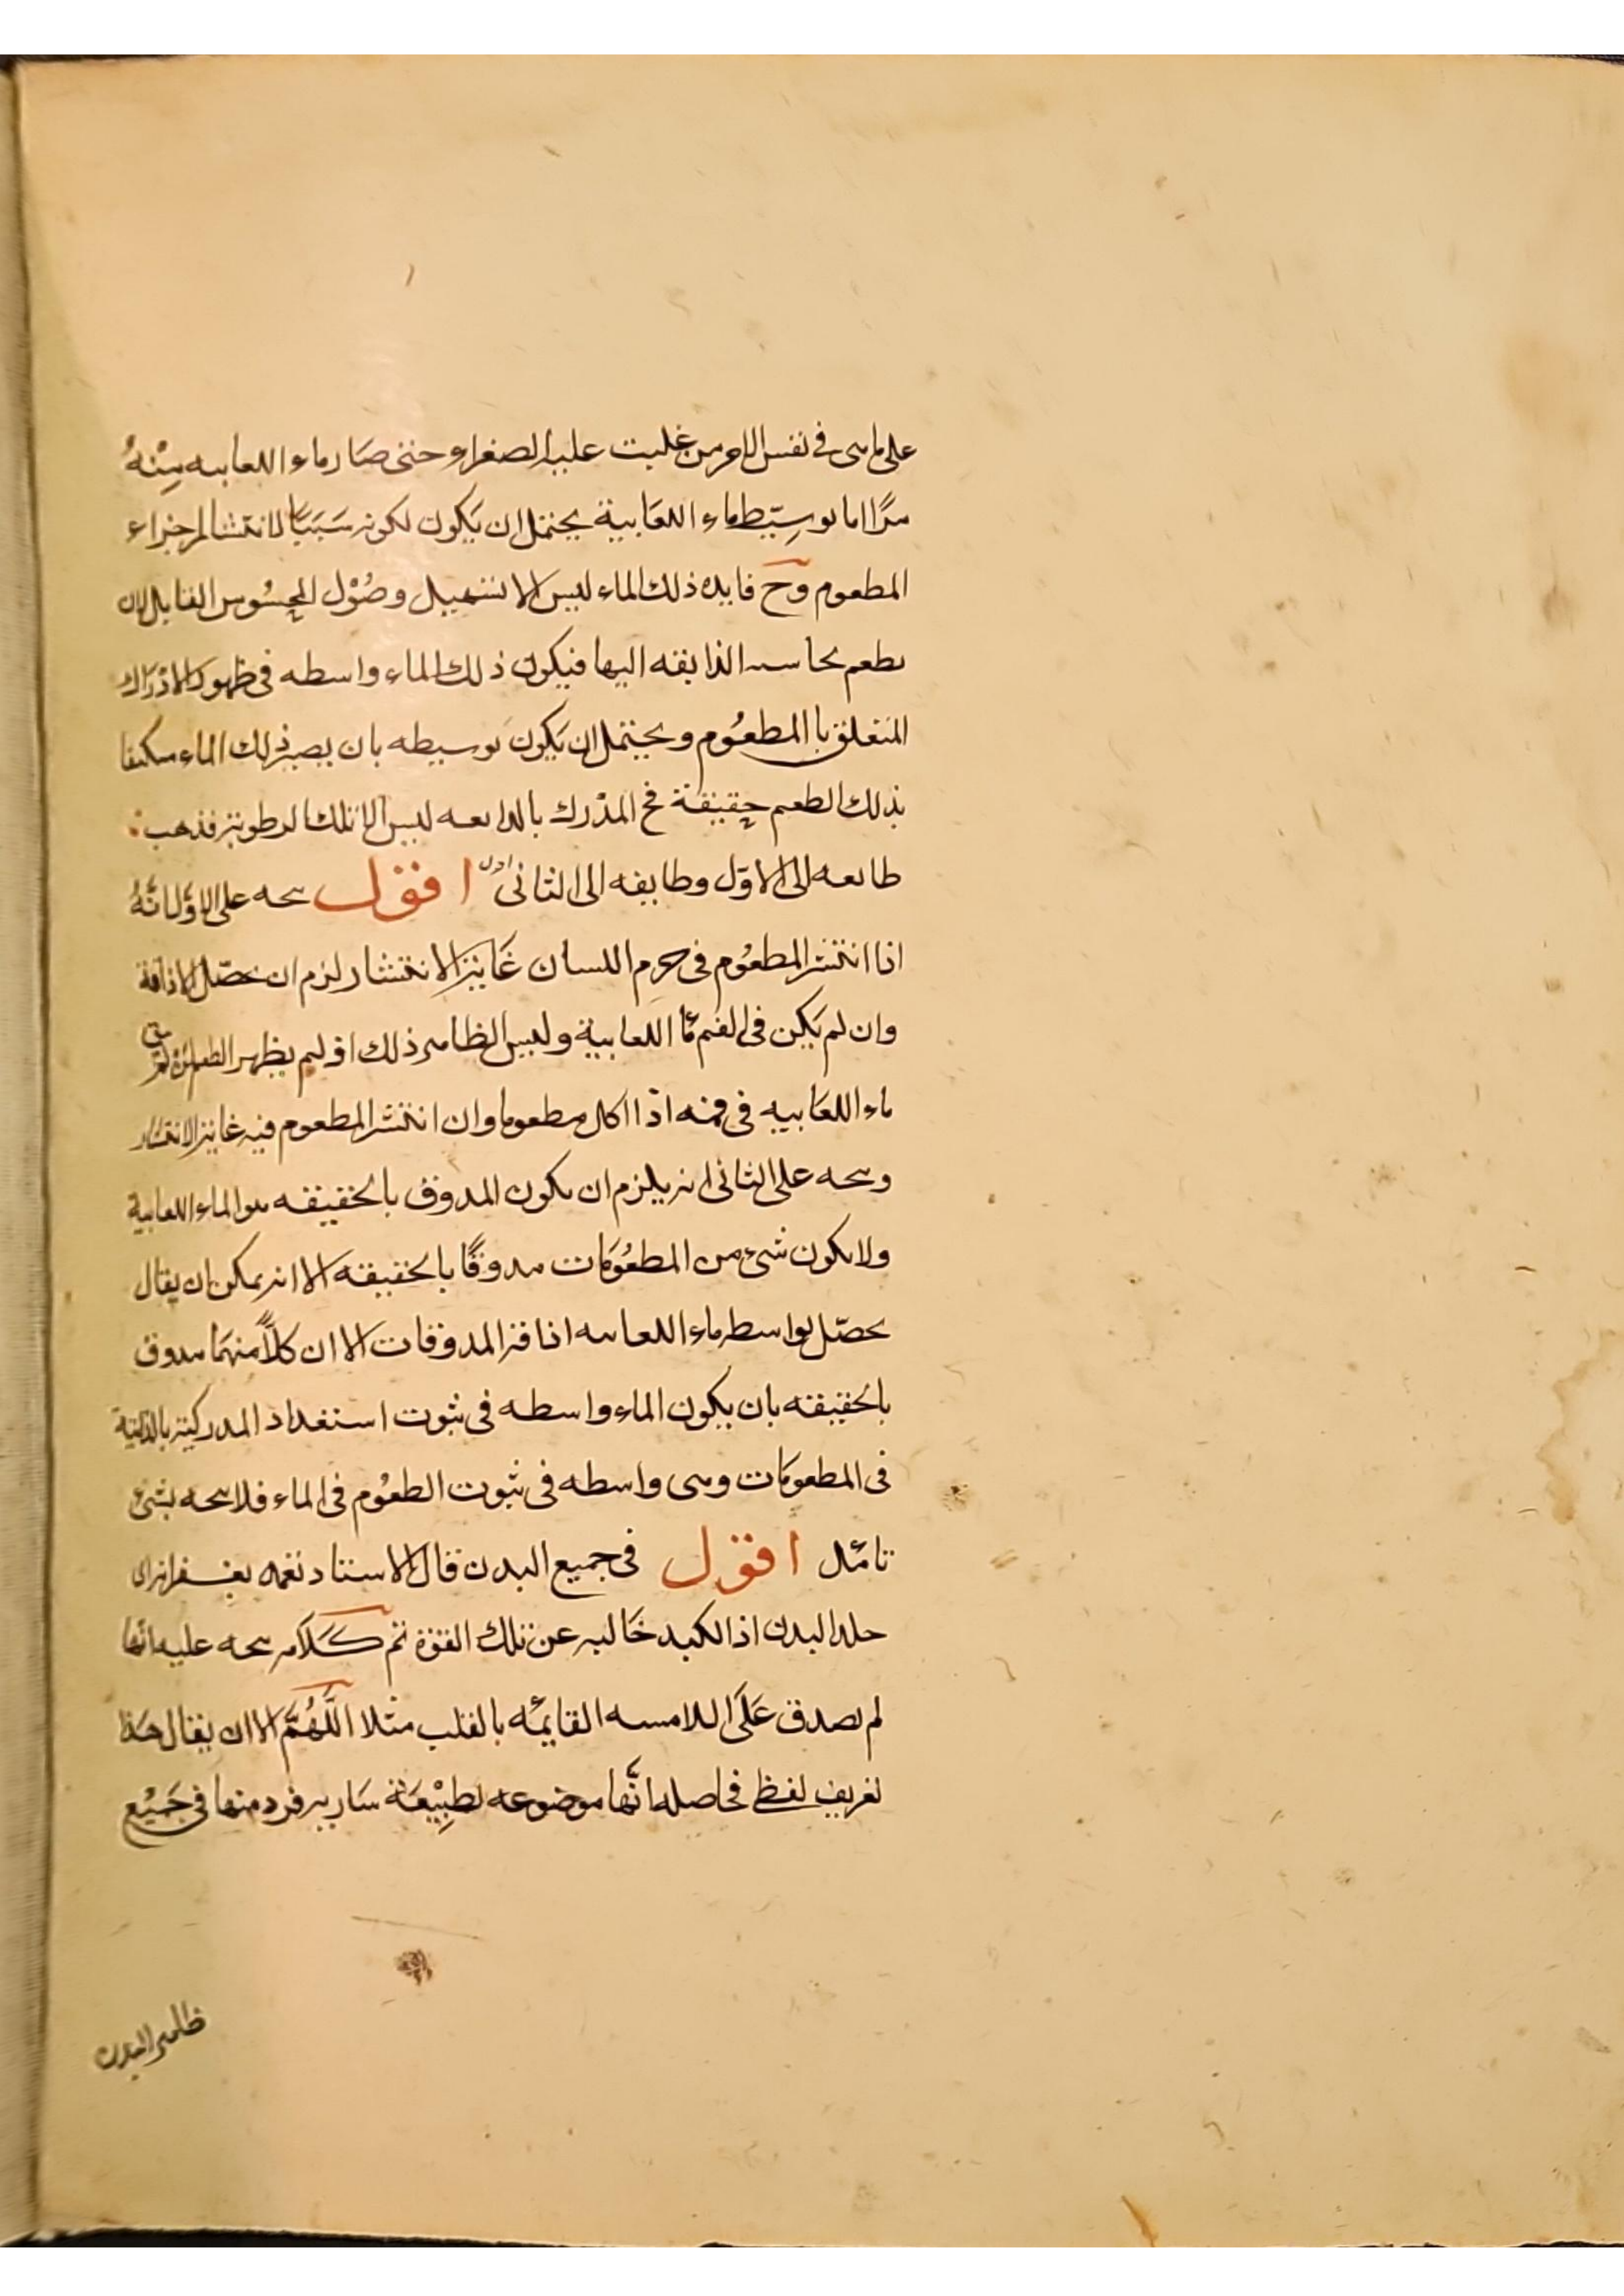 على ما هى فى نفس الامر من غلبت عليه الصفراء حتى صَار ماء اللعابيه مِنْهُ
مرًا اما توسِيّط ماء اللعَابية يحتمل ان يَكون لكونه سَبَبًا لانتشار اجزاء
المطعوم وح فايده ذلك الماء ليس الا تسهيل وصُوْل المحسُوس القابل لان
يطعم بحاسه الذايقه اليها فيكون ذلك الماء واسطه فى ظهور الادْرَاك
المتعلق با المطعُوم ويحتمل ان يَكونَ توسيطه بان يصير ذلك الماء متكيفا
بذلك الطعم حقيقة فح المدْرك بالذايعه ليس الا تلك الرطوبة فذهب
طايعه الى الاوّل وطايفه الى الثانى اقول يتجه على الاوّل انَّهُ
اذا انتشر المطعُوم فى جرم اللسان غَاية الانتشار لزم ان تحصّل الاذاقة
وان لم يَكن فى الفم مَاء اللعابية وليس الظاهر ذلك اذ لم يظهر الطعم
ماء اللعَابيه فى فمه اذا اكل مطعوما وان انتشر المطعوم فيه غاية الانتشار
ويتجه على الثانى انه يلزم ان يكون المذوق بالحقيقه هو الماء اللعابية
ولا يكون شئ من المطعُومَات مذوقًا بالحقيقه الا انه يمكن ان يقال
تحصّل بواسطه ماء اللعابيه اذاقة المذوقات الا ان كلًّا منهمَا مذوق
بالحقيقه بان يكون الماء واسطه فى ثبوت استعداد المدركية بالذايقة
فى المطعومَات وهى واسطه فى ثبوت الطعُوم فى الماء فلا يتجه بشئ
تامّل اقول فى جميع البدن قال الاستاد نغمه
جلد البدن اذ الكبد خَاليه عن تلك القوّة تم كَلَامه يتجه عليه انّها
لم يصدق عَلَى اللامسه القايمَه بالقلب مثلا اللّهُمَّ الا ان يقال هَذا
تعريف لفظى فحاصله انّها موضوعه لطبِيْعَة سَاريه فرد منها فى جَميْع
ظاهر البدن